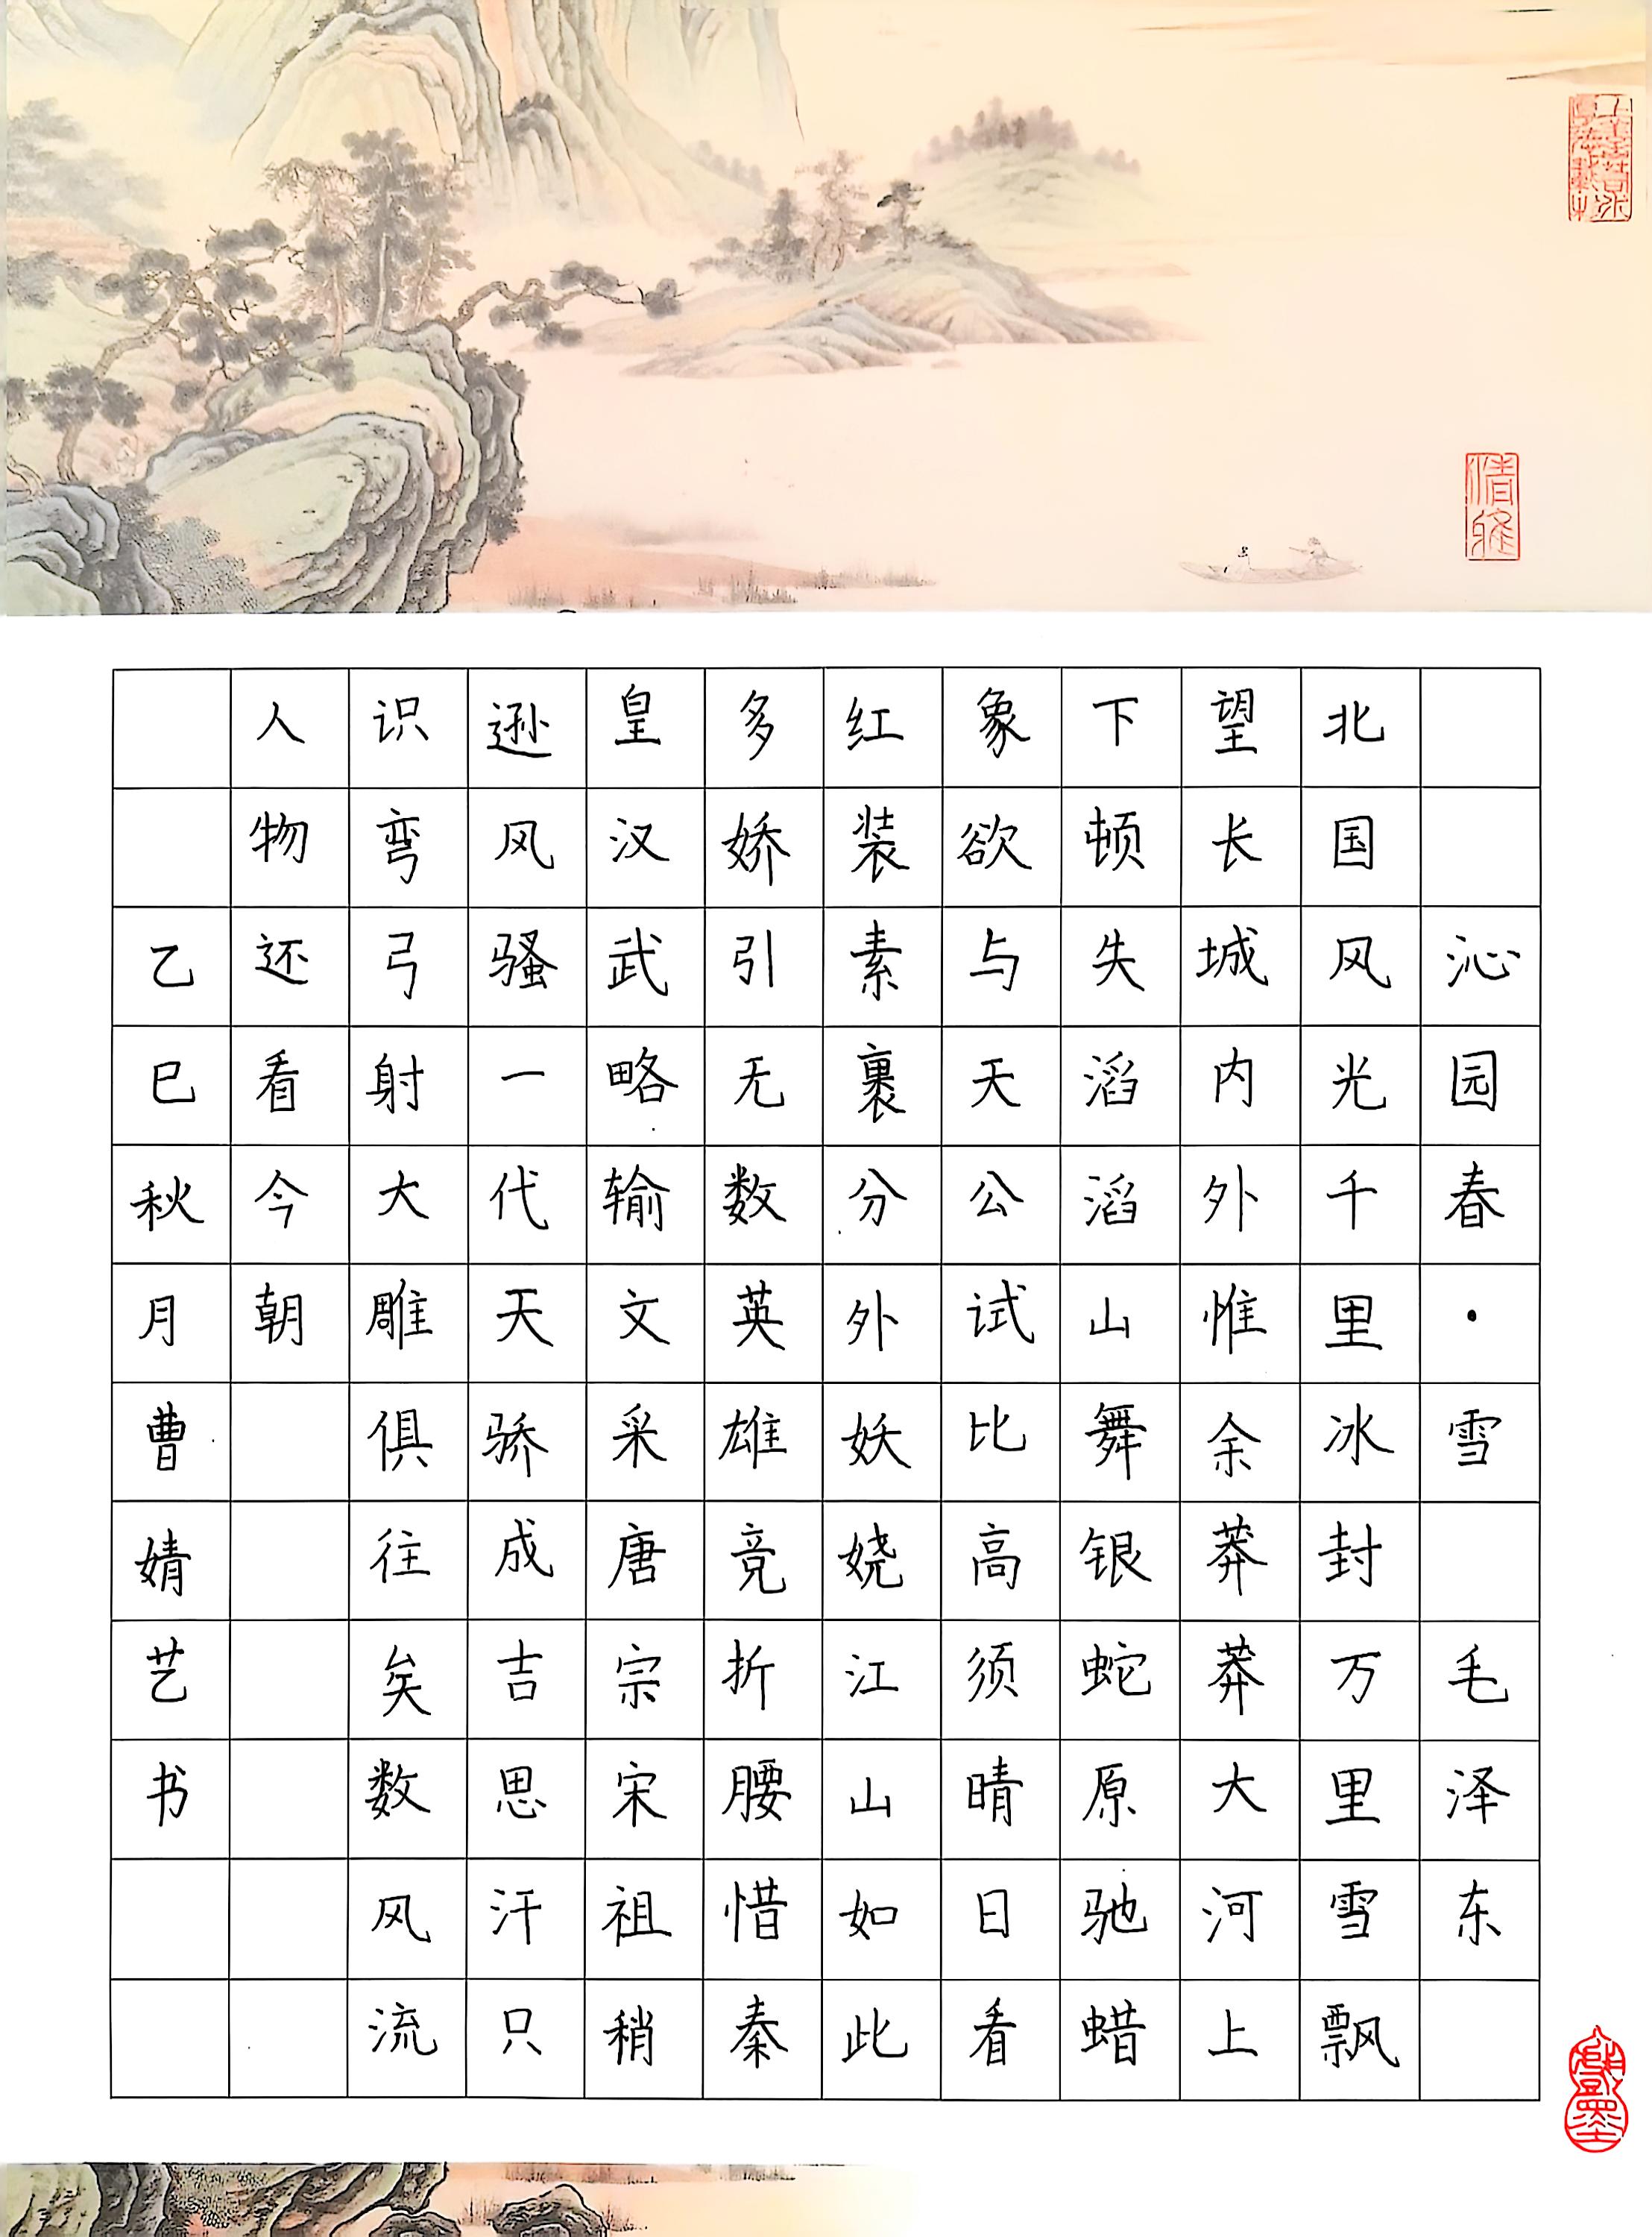 沁园春·雪 毛泽东
北国风光千里冰封万里雪飘
望长城内外惟余莽莽大河上
下顿失滔滔山舞银蛇原驰蜡
象欲与天公试比高须晴日看
红装素裹分外妖娆江山如此
多娇引无数英雄竞折腰惜秦
皇汉武略输文采唐宗宋祖稍
逊风骚一代天骄成吉思汗只
识弯弓射大雕俱往矣数风流
人物还看今朝
乙巳秋月曹婧艺书
上善若水
厚德载物